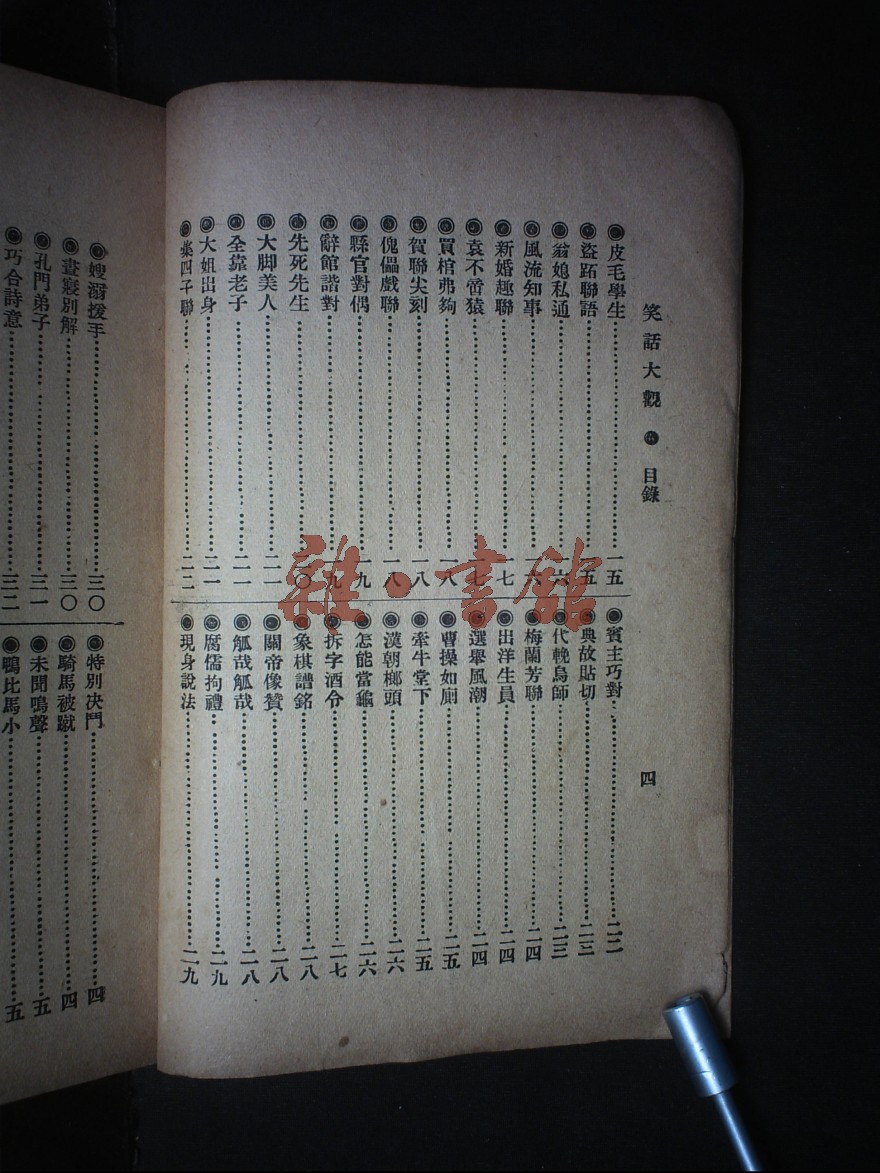 笑話大觀 目錄 四
皮毛學生 一五
盜跖聯語 一五
翁媳私通 一六
風流知事 一六
新婚趣聯 一七
袁不啻猿 一七
買棺弗夠 一八
賀聯尖刻 一八
傀儡戲聯 一八
縣官對偶 一九
辭館諧對 一九
先死先生 二〇
大脚美人 二一
全靠老子 二一
大姐出身 二一
四子聯 二二
賓主巧對 二二
典故貼切 二三
代輓烏師 二三
梅蘭芳聯 二四
出洋生員 二四
選舉風潮 二四
曹操如厠 二五
牽牛堂下 二五
漢朝榔頭 二六
怎能當龜 二六
拆字酒令 二七
象棋譜銘 二八
關帝像贊 二八
觚哉觚哉 二八
腐儒拘禮 二九
現身說法 二九
嫂溺援手 三〇
晝寢別解 三〇
孔門弟子 三一
巧合詩意 三二
特別決鬥 四
騎馬被蹴 四
未聞鳴聲 五
鴨比馬小 五
雜·書館